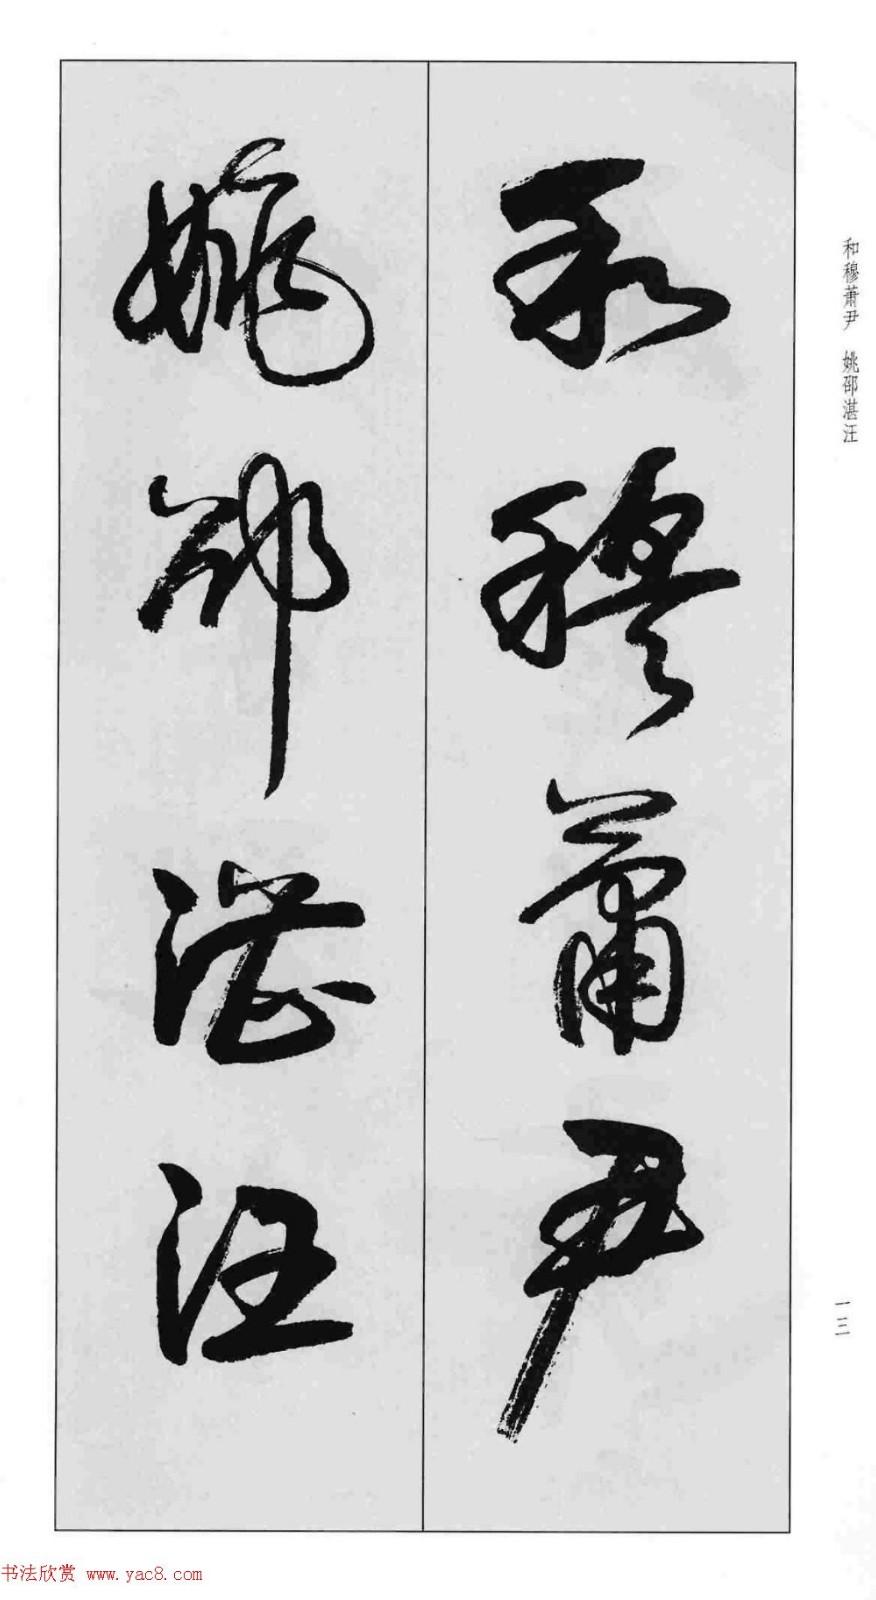 和穆萧尹
姚邵湛汪
和穆萧尹 姚邵湛汪
一三
书法欣赏 www.yac8.com